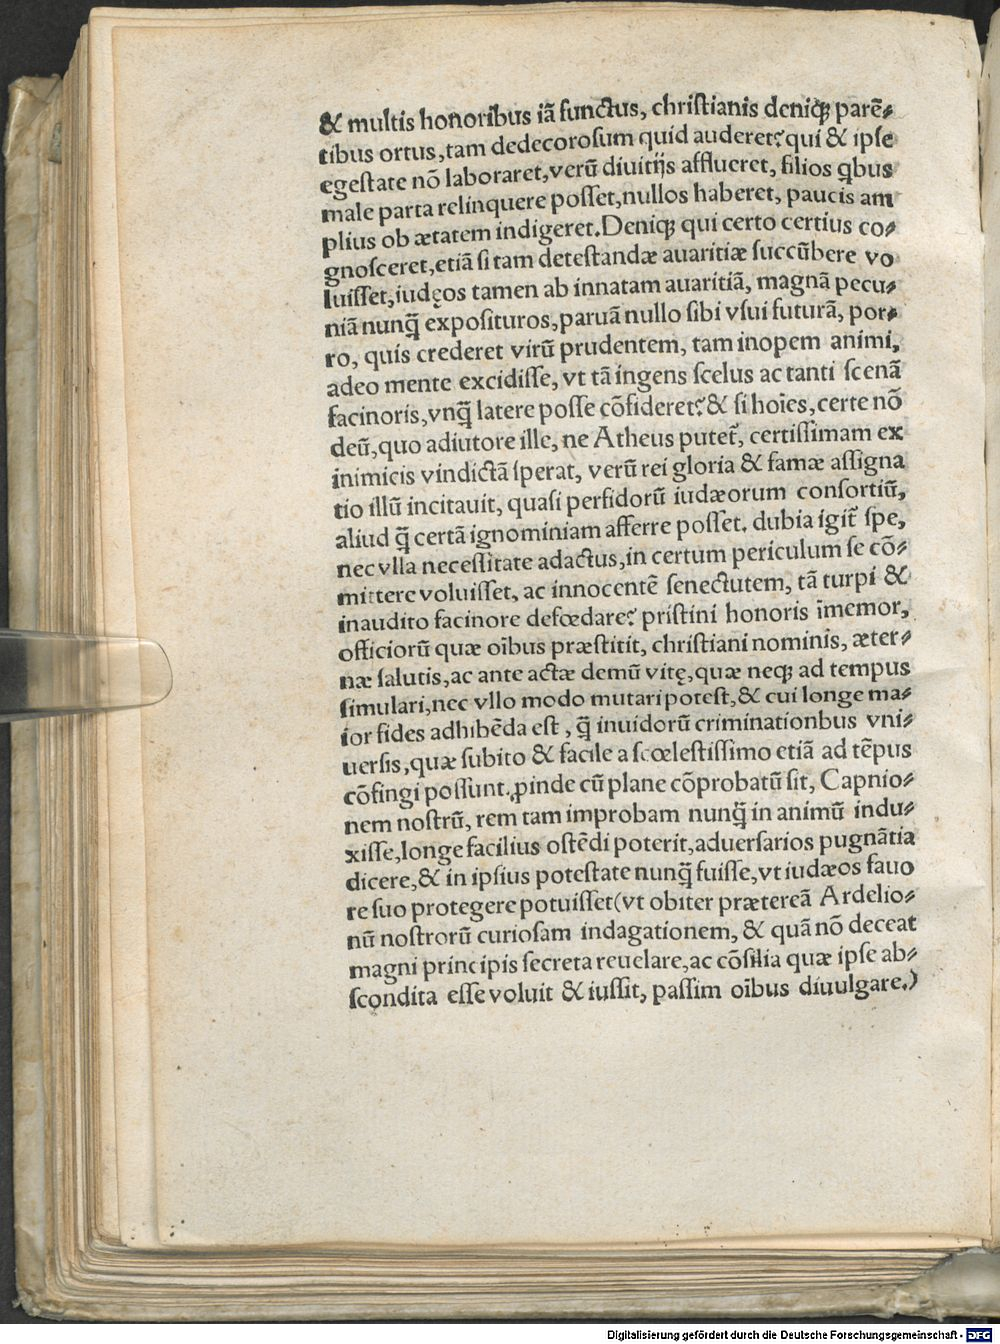 & multis honoribus iā functus, christianis deniqꝫ parē⸗
tibus ortus, tam dedecorosum quid auderet? qui & ipse
egestate nō laboraret, verū diuitijs afflueret, filios qbus
male parta relinquere posset, nullos haberet, paucis am
plius ob ætatem indigeret. Deniqꝫ qui certo certius co⸗
gnosceret, etiā si tam detestandæ auaritiæ succūbere vo
luisset, iudęos tamen ab innatam auaritiā, magnā pecu⸗
niā nunq̄ exposituros, paruā nullo sibi vsui futurā, por⸗
ro, quis crederet virū prudentem, tam inopem animi,
adeo mente excidisse, vt tā ingens scelus ac tanti scenā
facinoris, vnq̄ latere posse cōfideret? & si hoīes, certe nō
deū, quo adiutore ille, ne Atheus putet̄, certissimam ex
inimicis vindictā sperat, verū rei gloria & famæ assigna
tio illū incitauit, quasi perfidorū iudæorum consortiū,
aliud q̄ certā ignominiam afferre posset. dubia igit̄ spe,
nec vlla necessitate adactus, in certum periculum se cō⸗
mittere voluisset, ac innocentē senectutem, tā turpi &
inaudito facinore defœdare? pristini honoris īmemor,
officiorū quæ oībus præstitit, christiani nominis, æter⸗
næ salutis, ac ante actæ demū vitę, quæ neqꝫ ad tempus
simulari, nec vllo modo mutari potest, & cui longe ma⸗
ior fides adhibēda est, q̄ inuidorū criminationbus vni⸗
uersis, quæ subito & facile a scœlestissimo etiā ad tēpus
cōfingi possunt. ꝓinde cū plane cōprobatū sit, Capnio⸗
nem nostrū, rem tam improbam nunq̄ in animū indu⸗
xisse, longe facilius ostēdi poterit, aduersarios pugnātia
dicere, & in ipsius potestate nunq̄ fuisse, vt iudæos fauo
re suo protegere potuisset (vt obiter prætereā Ardelio⸗
nū nostrorū curiosam indagationem, & quā nō deceat
magni principis secreta reuelare, ac cōsilia quæ ipse ab⸗
scondita esse voluit & iussit, passim oībus diuulgare.)
Digitalisierung gefördert durch die Deutsche Forschungsgemeinschaft - DFG